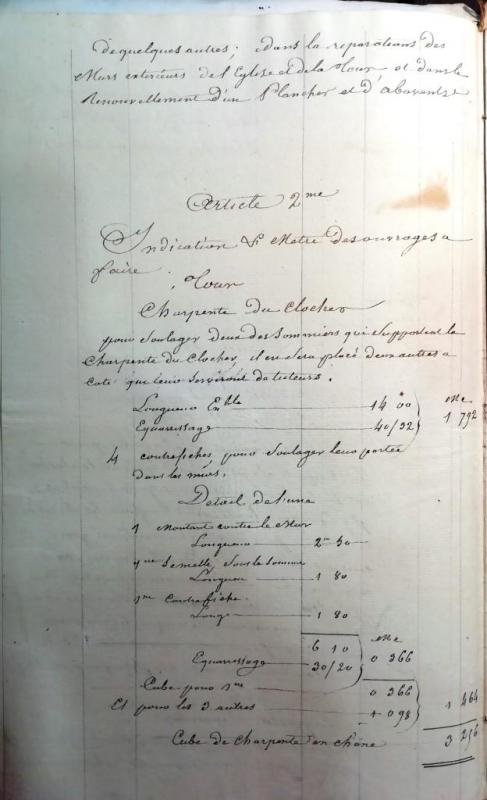 de quelques autres; dans la reparations des
Murs exterieurs de l'Eglise et de la Tour, et dans le
Renouvellement d'un Plancher et d'abavents
Article 2me
Indication & Metré des ouvrages a
faire
Tour
Charpente du Clocher
pour soulager deux des sommiers qui supportent la
Charpente du Clocher, il en sera placé deux autres a
coté qui leur serviront de tuteurs.
Longueur Enble 14 00 Me
Equarrissage 40/32 1 792
4 contrefiches, pour soulager leur portée
dans les murs.
Détail de l'une
1 Montant contre le Mur
Longueur 2m 50
1ne Semelle, sous le sommier
Longueur 1 80
1ne Contrefiche
Longr 1 80
6 10 Me
Equarrissage 30/20 0 366
Cube pour 1ne 0 366
Et pour les 3 autres 1 098 1 464
Cube de Charpente en chêne 3 256